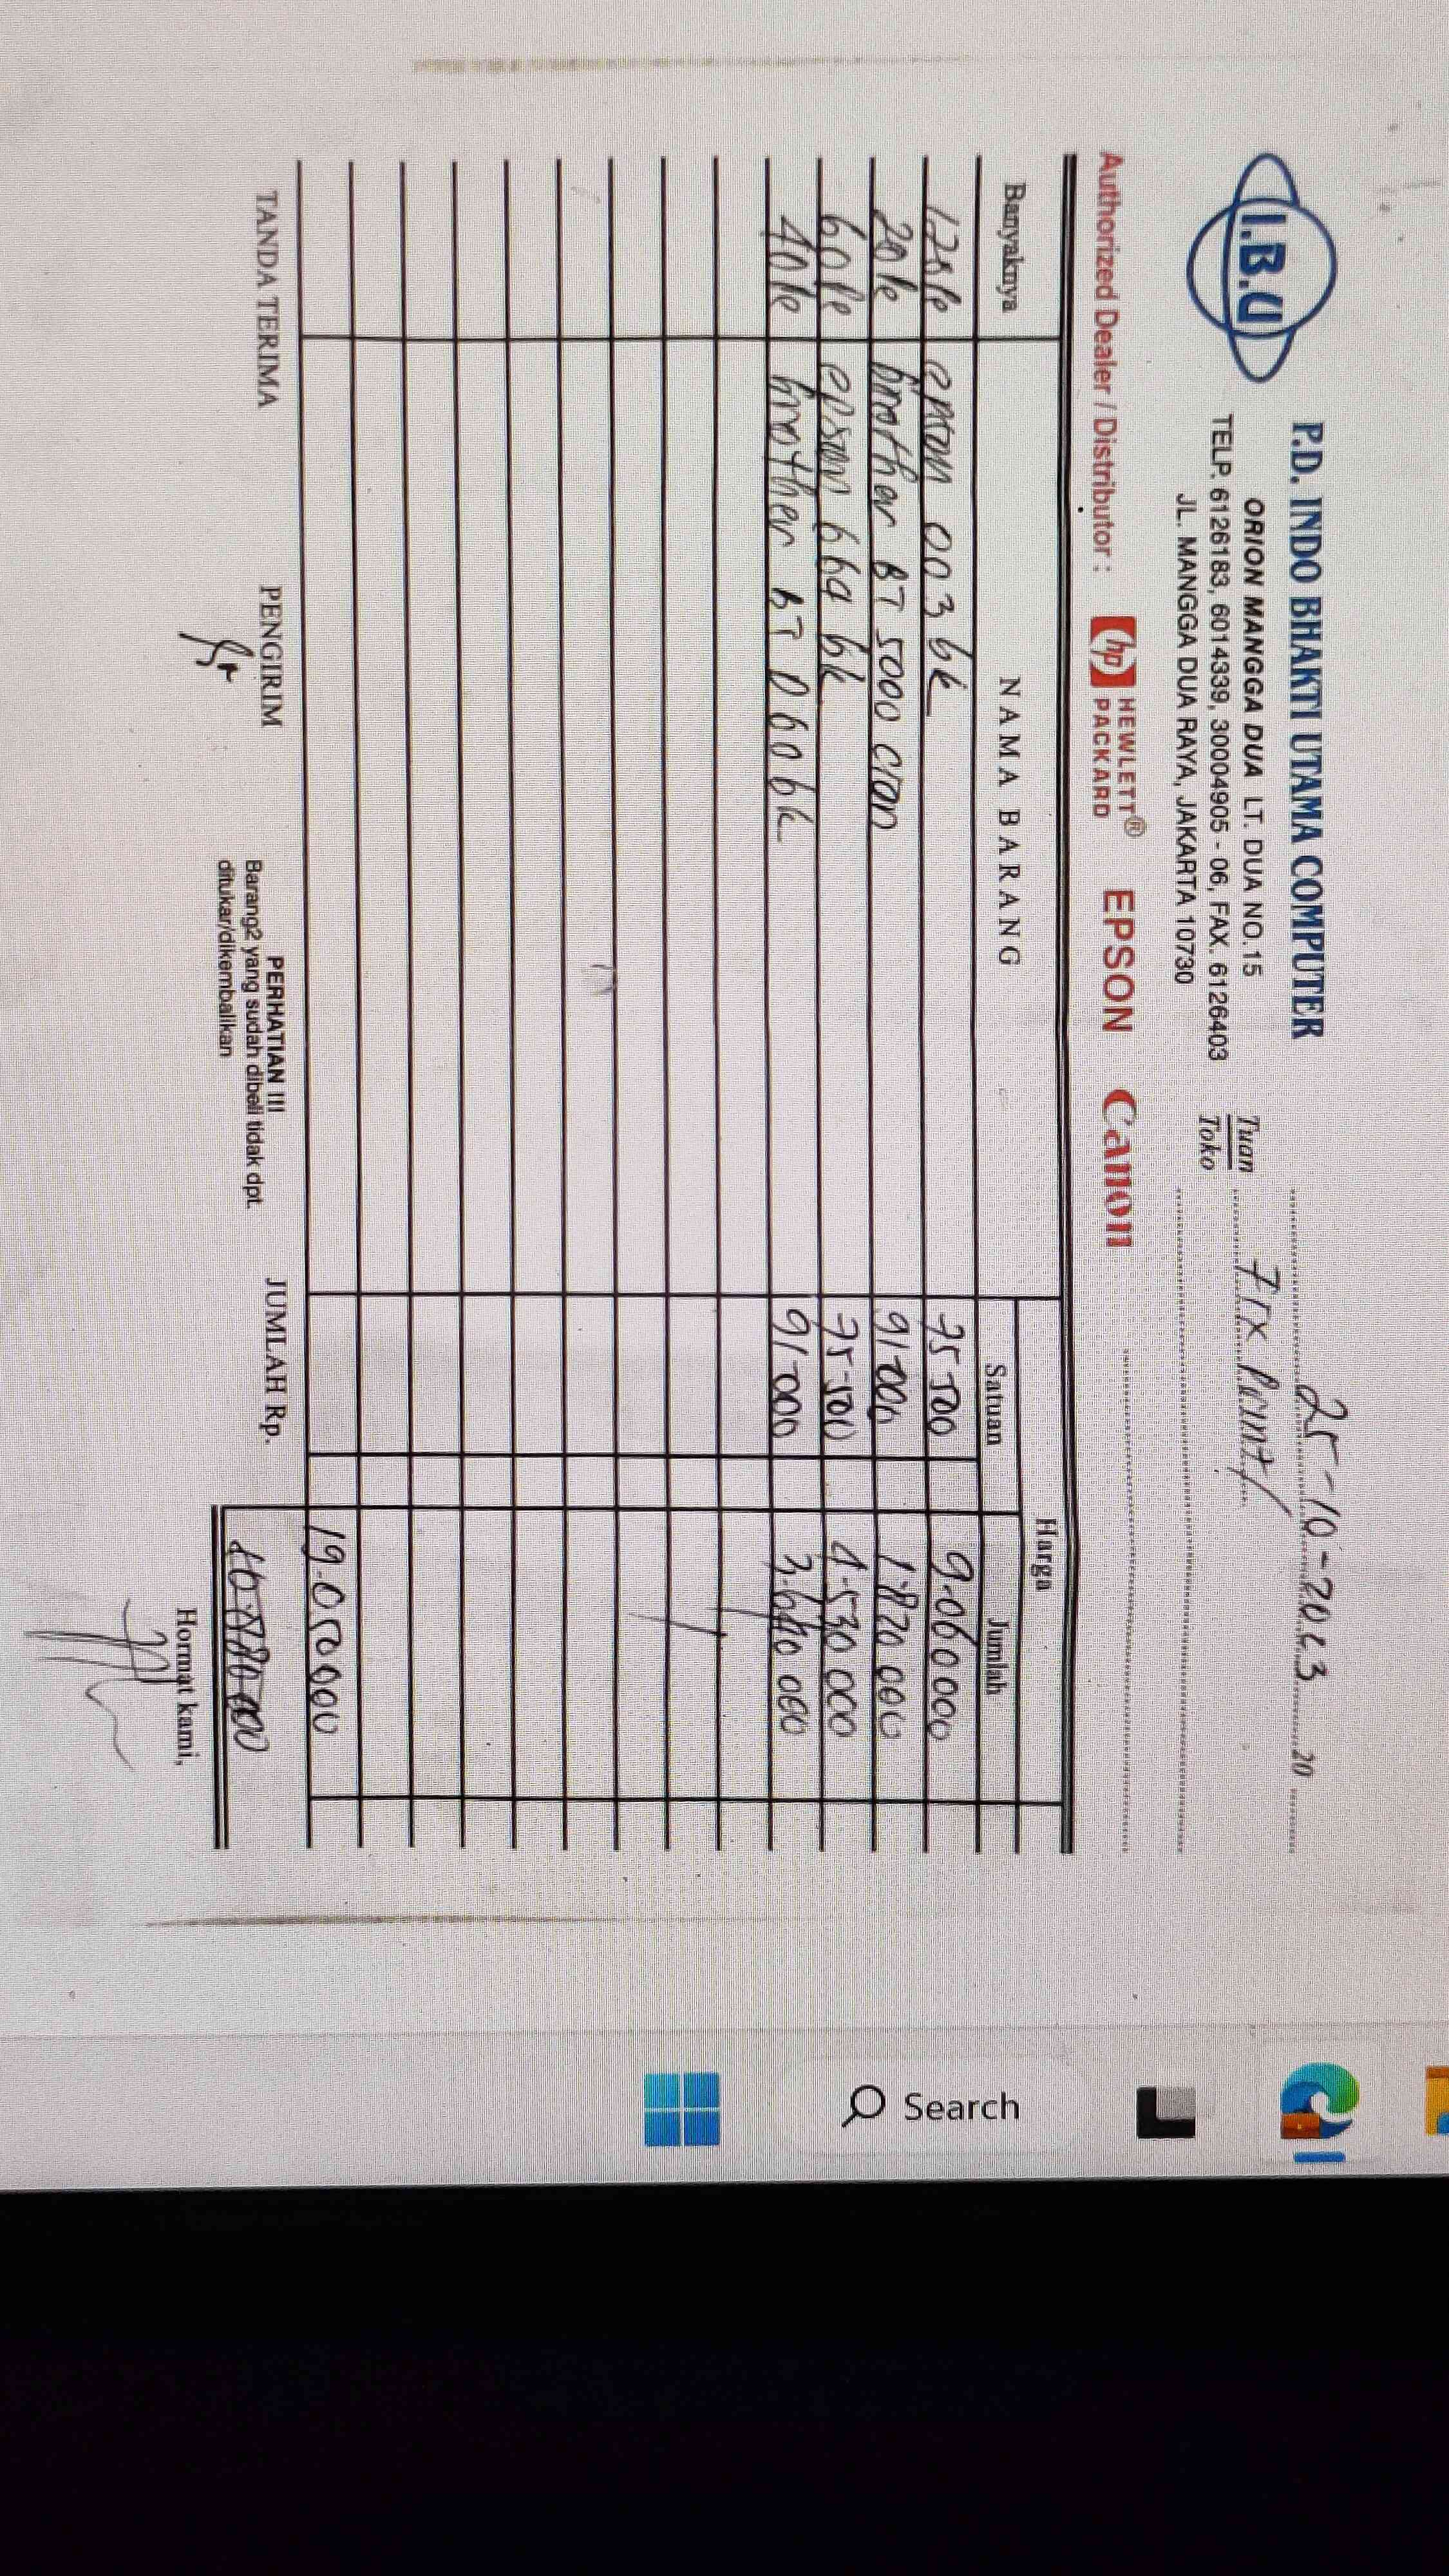 I.B.U
P.D. INDO BHAKTI UTAMA COMPUTER
ORION MANGGA DUA LT. DUA NO.15
TELP. 6126183, 6014339, 30004905 - 06, FAX. 6126403
JL. MANGGA DUA RAYA, JAKARTA 10730
25-10-2023 20
Tuan
Toko
Authorized Dealer / Distributor : hp HEWLETT® PACKARD EPSON Canon
Banyaknya NAMA BARANG Harga
Satuan Jumlah
epson 003 bk 75 500 9.060 000
20 brother BT 5000 cian 91.000 1.820 000
60 epson 664 bk 75-500 4.530 000
40 brother BT D60 bk 91.000 3.640 000
19.050 000
TANDA TERIMA PENGIRIM PERHATIAN !!! JUMLAH Rp.
Barang2 yang sudah dibeli tidak dpt.
ditukar/dikembalikan
Hormat kami,
Search